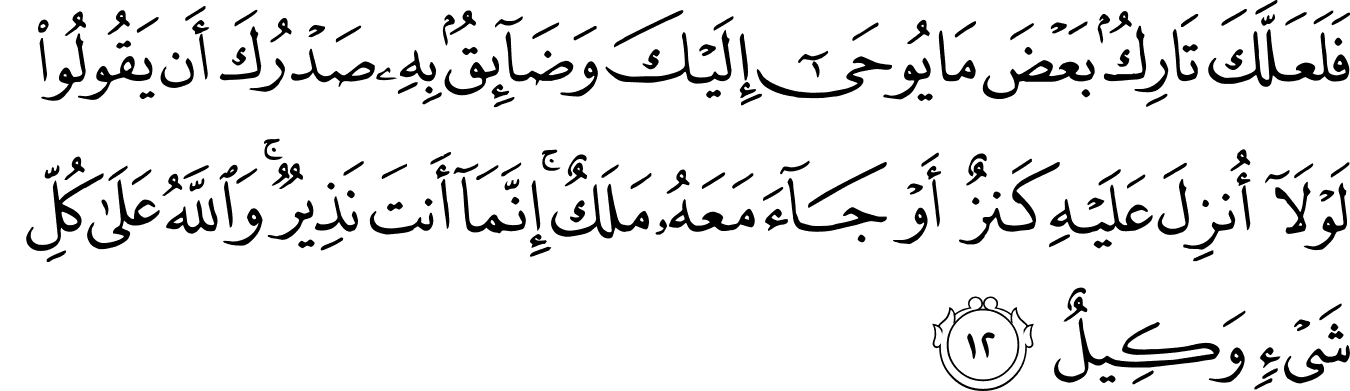 فَلَعَلَّكَ تَارِكُۢ بَعْضَ مَا يُوحَىٰٓ إِلَيْكَ وَضَآئِقُۢ بِهِۦ صَدْرُكَ أَن يَقُولُوا۟
لَوْلَآ أُنزِلَ عَلَيْهِ كَنزٌ أَوْ جَآءَ مَعَهُۥ مَلَكٌ ۚ إِنَّمَآ أَنتَ نَذِيرٌ ۚ وَٱللَّهُ عَلَىٰ كُلِّ
شَىْءٍ وَكِيلٌ ١٢